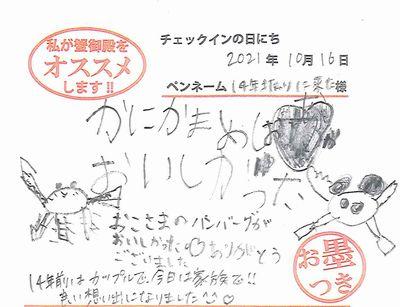 私が蟹御殿を
オススメ
します!!
チェックインの日にち
2021年 10月 16日
ペンネーム 14年ぶりに来た様
かにかまめしは
おいしかった
おこさまのハンバーグが
おいしかった♡ありがとう
ございました
14年前はカップルで、今日は家族で!!
良い想い出になりました
お墨
つき